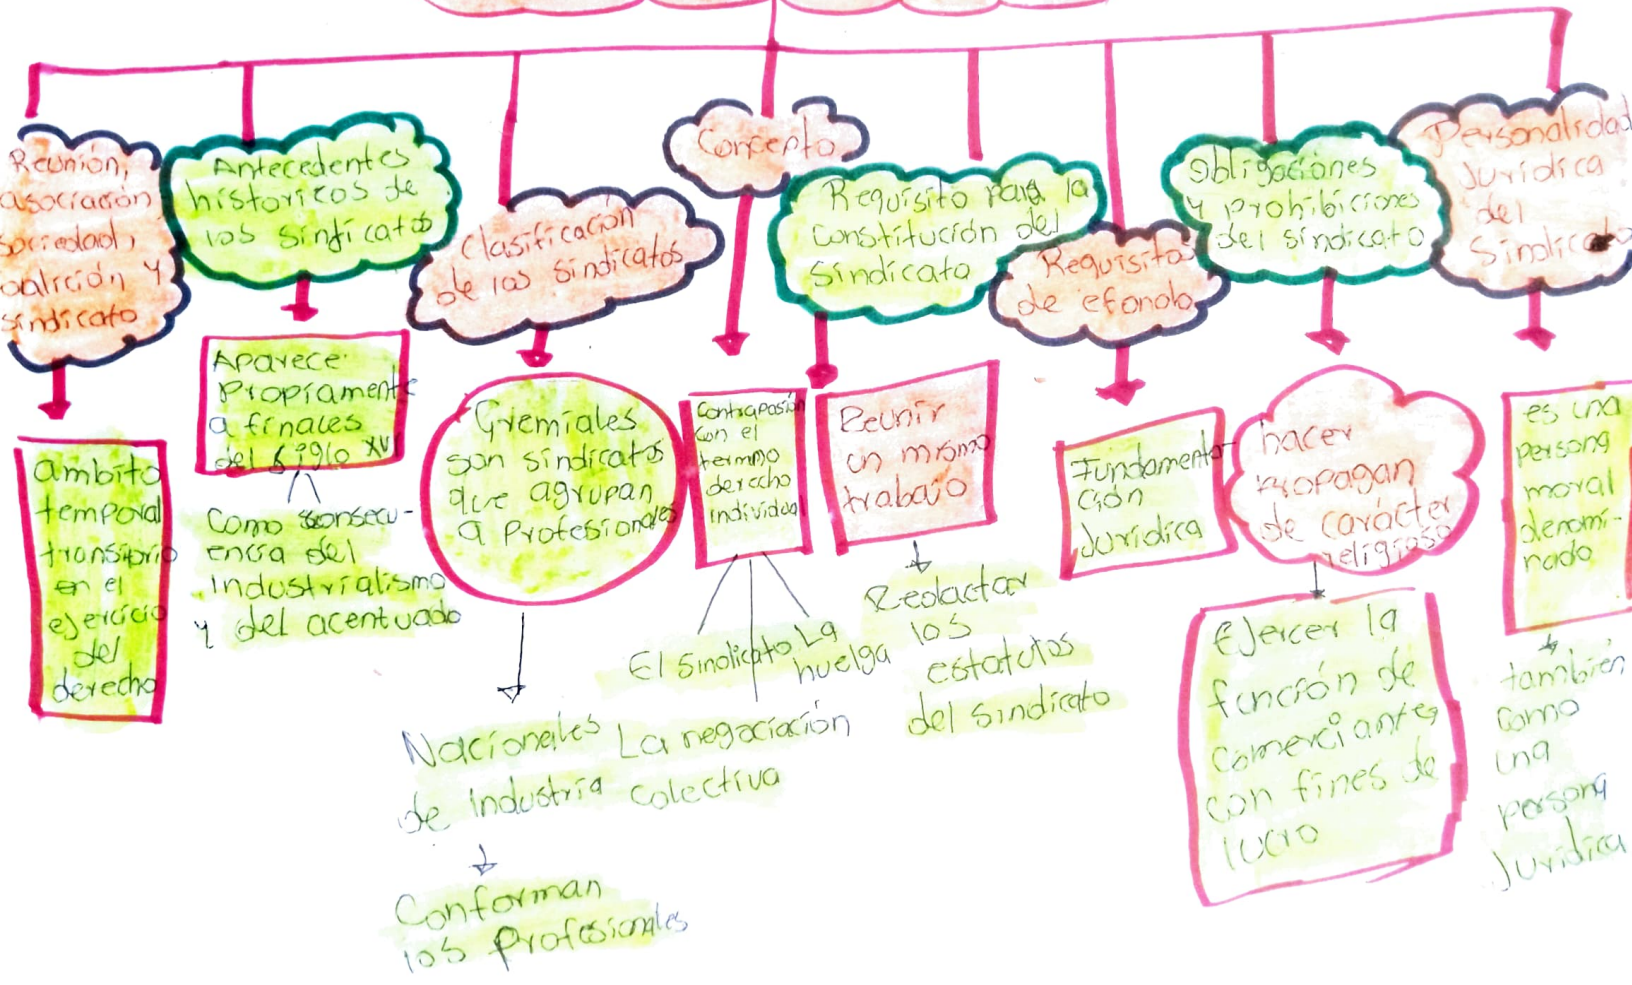 Reunión,
asociación
sociedad,
oalición y
sindicato
ambito
temporal
transitorio
en el
ejercicio
del
derecho
Antecedentes
historicos de
los sindicatos
Aparece
Propiamente
a finales
del siglo XVI
Como consecu-
encia del
industrialismo
y del acentuado
Clasificación
de los Sindicatos
Gremiales
son sindicatos
que agrupan
a Profesionales
Nacionales
de industria
Conforman
los profesionales
Concepto
Contraposión
con el
termino
derecho
individual
El sindicato
La negociación
colectiva
La
huelga
Requisito para la
Constitución del
Sindicato
Reunir
un mismo
trabajo
Redactar
los
estatutos
del sindicato
Requisitos
de efondo
Fundamenta-
ción
Jurídica
Obligaciones
y prohibiciones
del sindicato
hacer
propagan
de carácter
religioso
Ejercer la
función de
comerciantes
con fines de
lucro
Personalidad
Jurídica
del
Sindicato
es una
persona
moral
denomi-
nado
también
como
una
persona
Jurídica